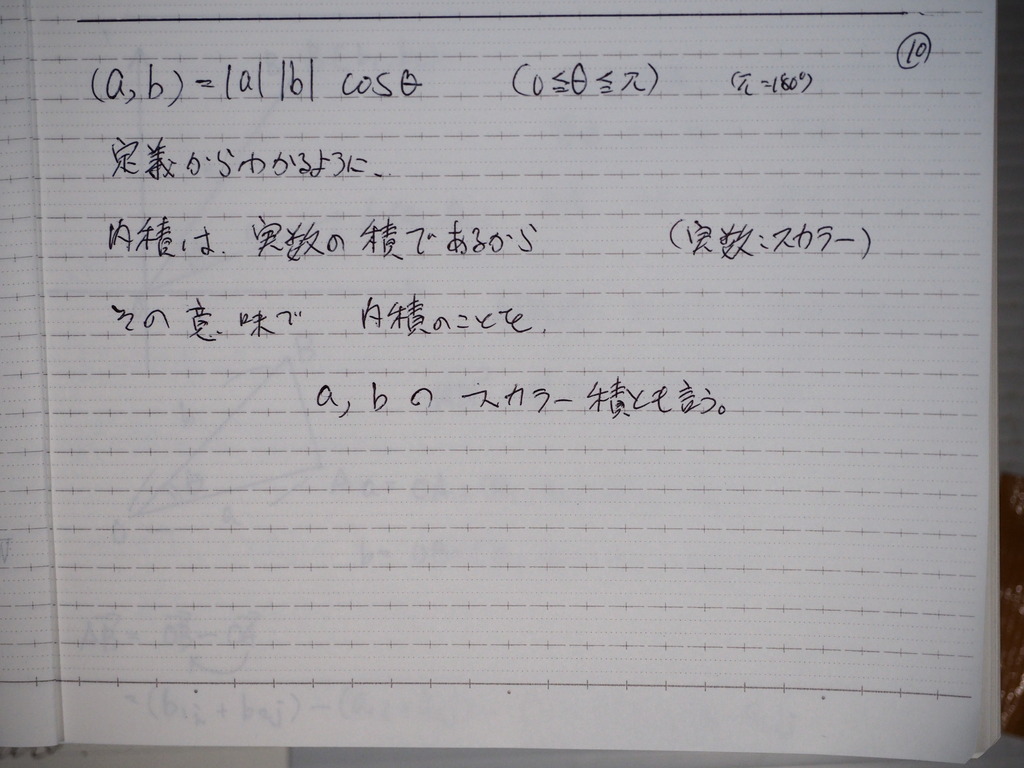 ⑩
(a, b) = |a| |b| cosθ (0≦θ≦π) (π=180°)
定義からわかるように、
内積は、実数の積であるから (実数:スカラー)
その意味で 内積のことを、
a, b の スカラー積とも言う。